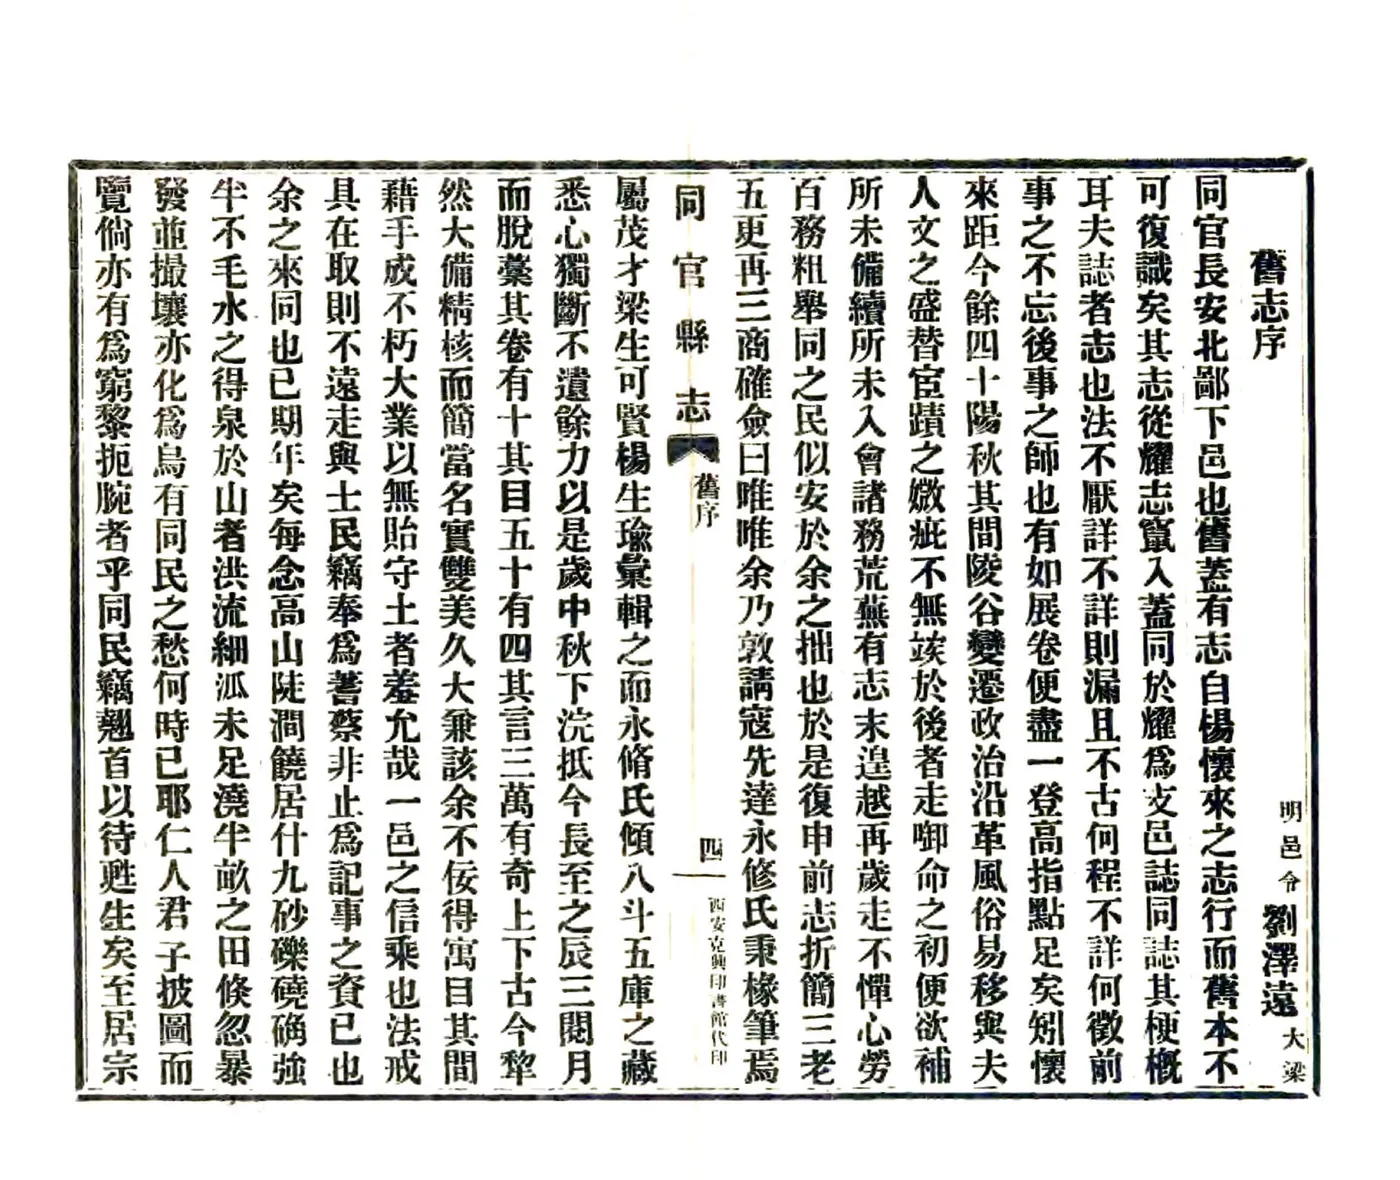 舊志序
明邑令劉澤遠大梁
同官長安北鄙下邑也舊蓋有志自楊懷來之志行而舊本不
可復識矣其志從耀志竄入蓋同於耀爲支邑誌同誌其梗槪
耳夫誌者志也法不厭詳不詳則漏且不古何程不詳何徵前
事之不忘後事之師也有如展卷便盡一登高指點足矣矧懷
來距今餘四十陽秋其間陵谷變遷政治沿革風俗易移與夫
人文之盛替宦蹟之媺疵不無竢於後者走啣命之初便欲補
所未備續所未入會諸務荒蕪有志未遑越再歲走不憚心勞
百務粗舉同之民似安於余之拙也於是復申前志折簡三老
五更再三商確僉曰唯唯余乃敦請寇先達永修氏秉椽筆焉
同官縣志
舊序
四
西安克興印書館代印
屬茂才梁生可賢楊生瑜彙輯之而永脩氏傾八斗五庫之藏
悉心獨斷不遺餘力以是歲中秋下浣抵今長至之辰三閱月
而脫藁其卷有十其目五十有四其言三萬有奇上下古今犂
然大備精核而簡當名實雙美久大兼該余不佞得寓目其間
藉手成不朽大業以無貽守土者羞允哉一邑之信乘也法戒
具在取則不遠走與士民竊奉爲蓍蔡非止爲記事之資已也
余之來同也已期年矣每念高山陡澗饒居什九砂礫磽确強
半不毛水之得泉於山者洪流細泒未足澆半畝之田倏忽暴
發並撮壤亦化爲烏有同民之愁何時已耶仁人君子披圖而
覽倘亦有爲窮黎扼腕者乎同民竊翹首以待甦生矣至居宗